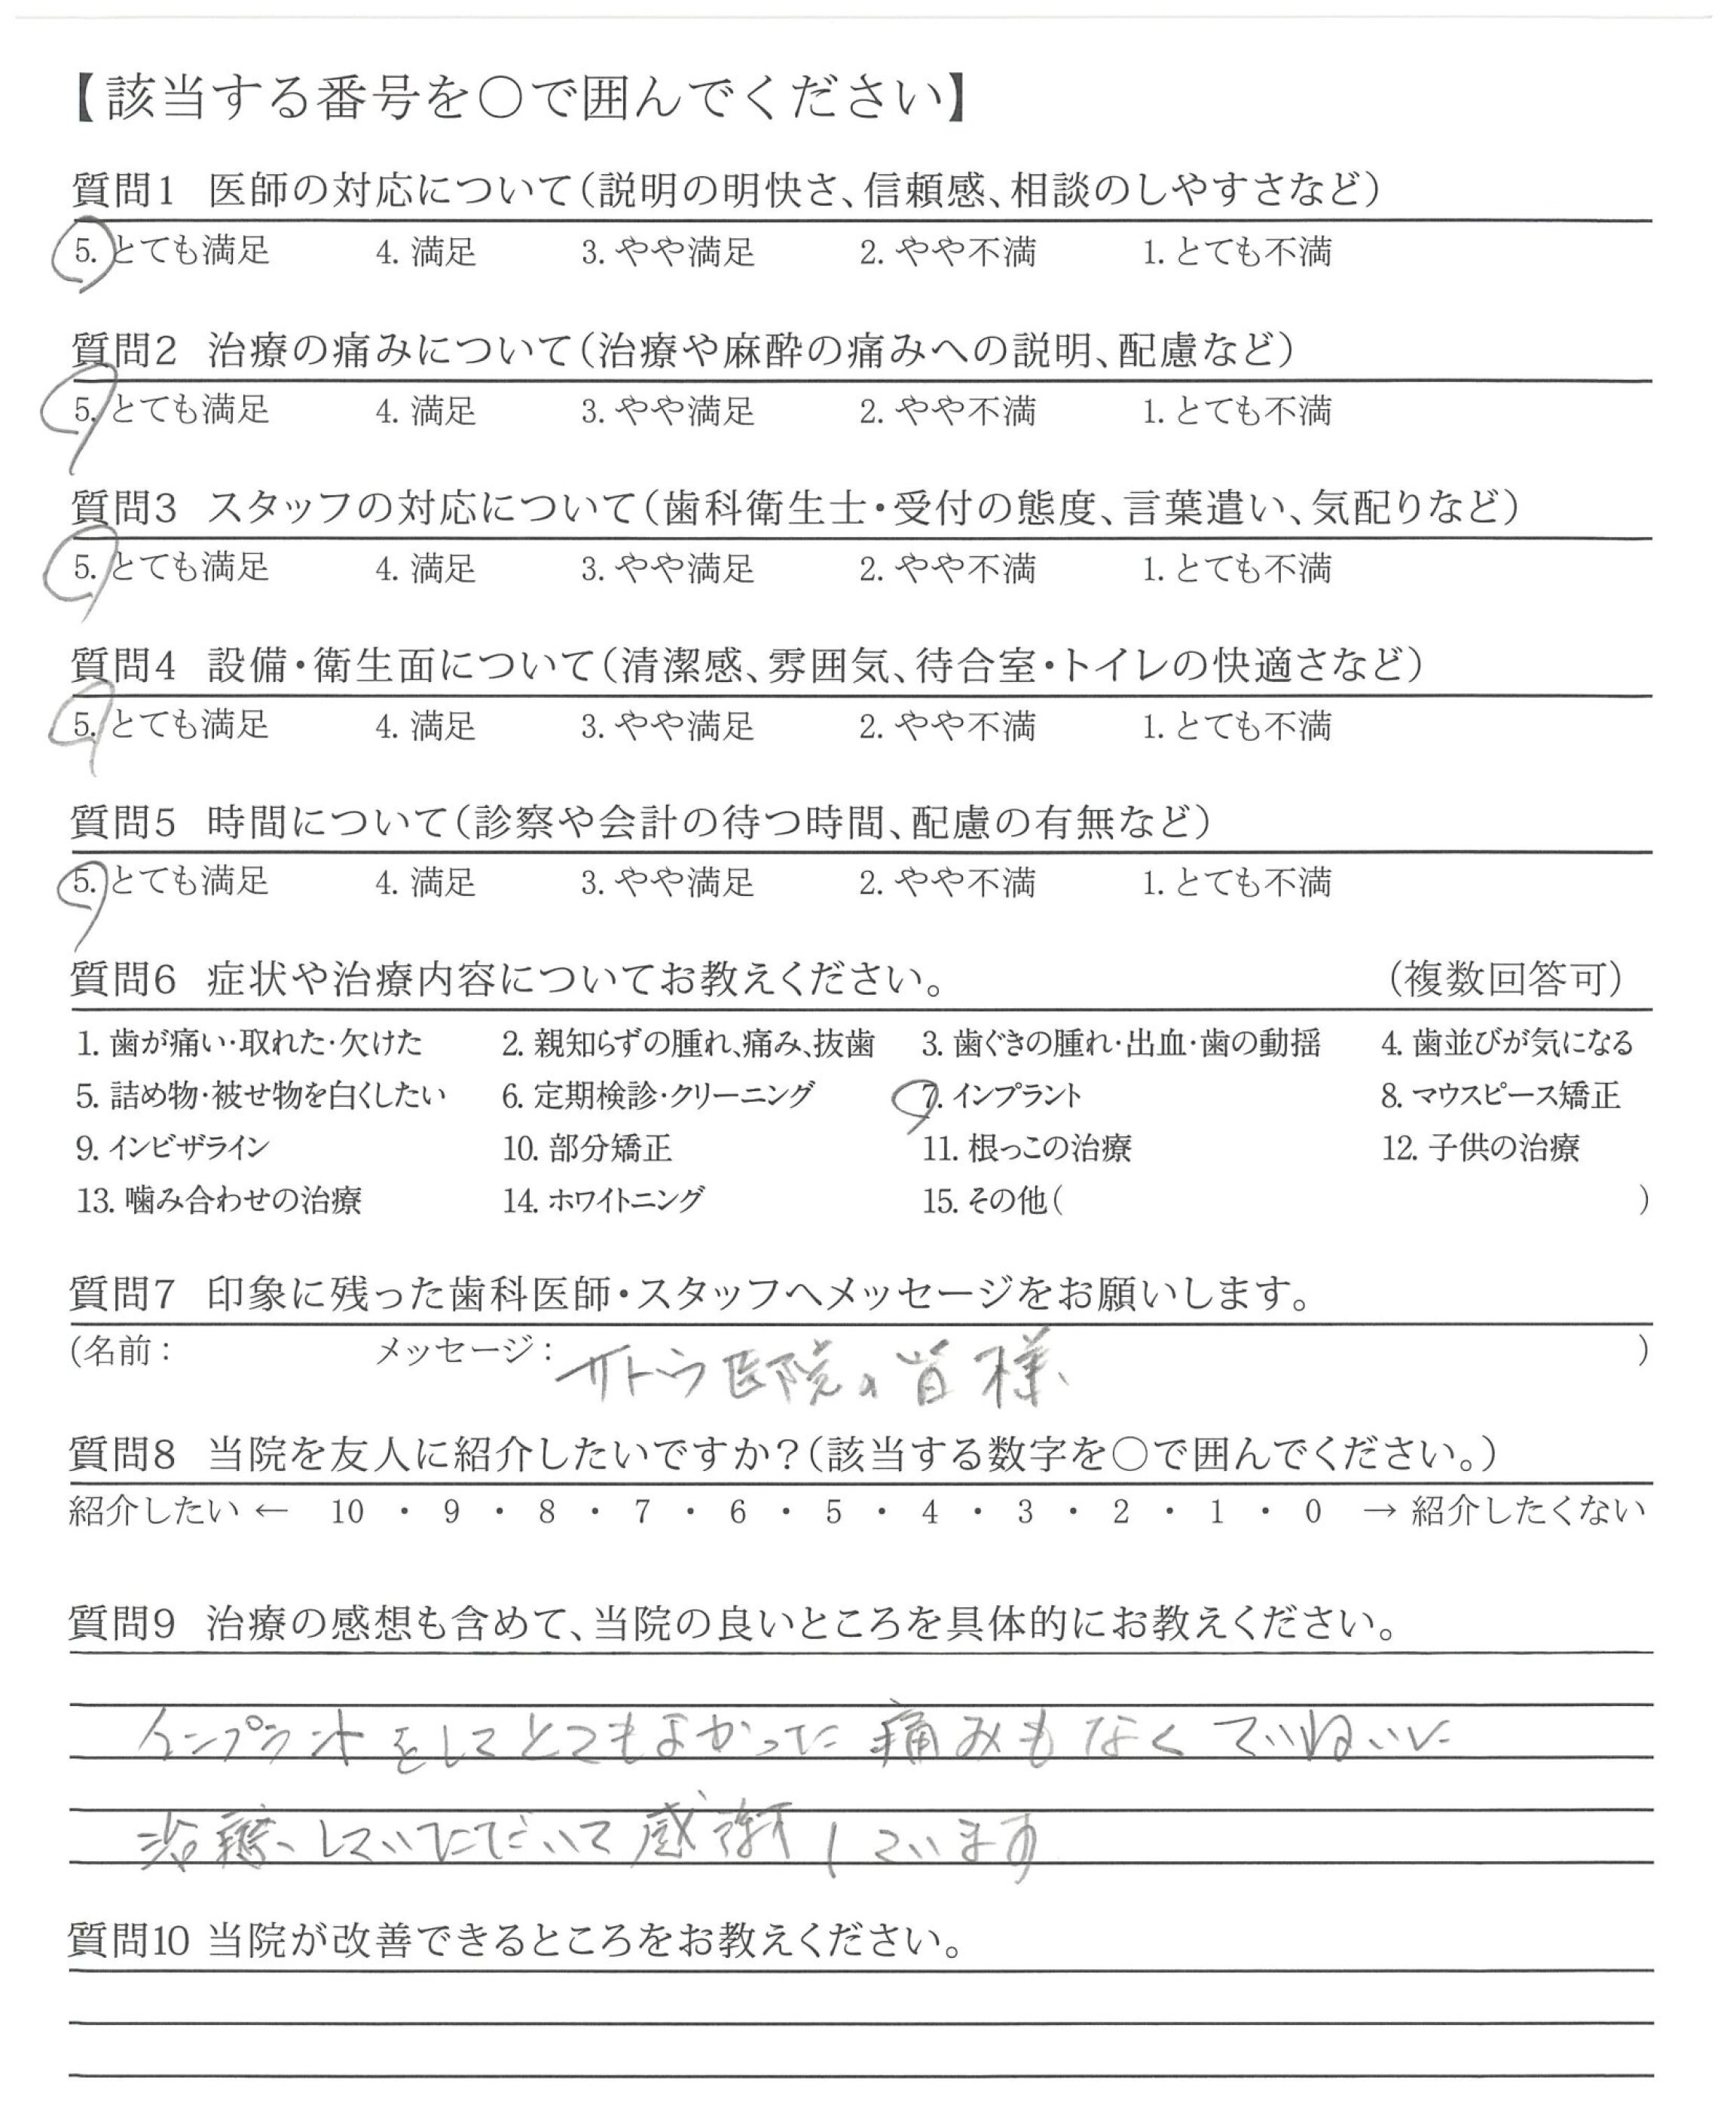 【該当する番号を○で囲んでください】
質問1 医師の対応について(説明の明快さ、信頼感、相談のしやすさなど)
5. とても満足 4. 満足 3. やや満足 2. やや不満 1. とても不満
質問2 治療の痛みについて(治療や麻酔の痛みへの説明、配慮など)
5. とても満足 4. 満足 3. やや満足 2. やや不満 1. とても不満
質問3 スタッフの対応について(歯科衛生士・受付の態度、言葉遣い、気配りなど)
5. とても満足 4. 満足 3. やや満足 2. やや不満 1. とても不満
質問4 設備・衛生面について(清潔感、雰囲気、待合室・トイレの快適さなど)
5. とても満足 4. 満足 3. やや満足 2. やや不満 1. とても不満
質問5 時間について(診察や会計の待つ時間、配慮の有無など)
5. とても満足 4. 満足 3. やや満足 2. やや不満 1. とても不満
質問6 症状や治療内容についてお教えください。 (複数回答可)
1. 歯が痛い・取れた・欠けた 2. 親知らずの腫れ、痛み、抜歯 3. 歯ぐきの腫れ・出血・歯の動揺 4. 歯並びが気になる
5. 詰め物・被せ物を白くしたい 6. 定期検診・クリーニング 7. インプラント 8. マウスピース矯正
9. インビザライン 10. 部分矯正 11. 根っこの治療 12. 子供の治療
13. 噛み合わせの治療 14. ホワイトニング 15. その他( )
質問7 印象に残った歯科医師・スタッフへメッセージをお願いします。
(名前: メッセージ: サトウ医院の皆様 )
質問8 当院を友人に紹介したいですか?(該当する数字を○で囲んでください。)
紹介したい ← 10 ・ 9 ・ 8 ・ 7 ・ 6 ・ 5 ・ 4 ・ 3 ・ 2 ・ 1 ・ 0 → 紹介したくない
質問9 治療の感想も含めて、当院の良いところを具体的にお教えください。
インプラントをしてとてもよかった 痛みもなくていねいに
治療していただいて感謝しています
質問10 当院が改善できるところをお教えください。